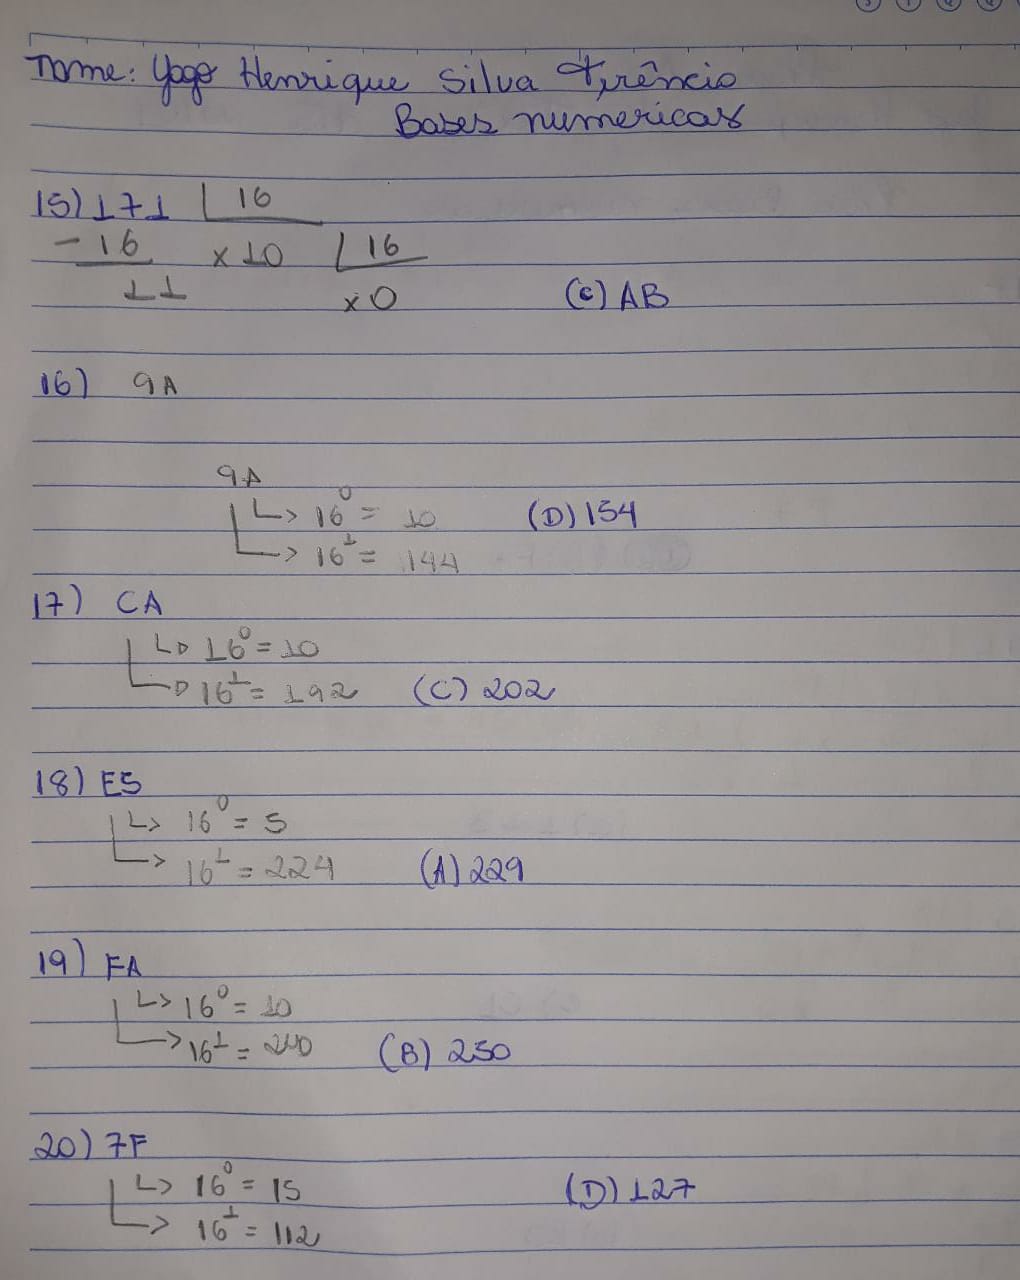 Nome: Yago Henrique Silva Terêncio
Bases numericas
15) 171 16
- 16 x 10 16
11 x 0 (C) AB
16) 9A
9A
↳ 16⁰ = 10 (D) 154
↳ 16¹ = 144
17) CA
↳ 16⁰ = 10
↳ 16¹ = 192 (C) 202
18) E5
↳ 16⁰ = 5
↳ 16¹ = 224 (A) 229
19) FA
↳ 16⁰ = 10
↳ 16¹ = 240 (B) 250
20) 7F
↳ 16⁰ = 15 (D) 127
↳ 16¹ = 112